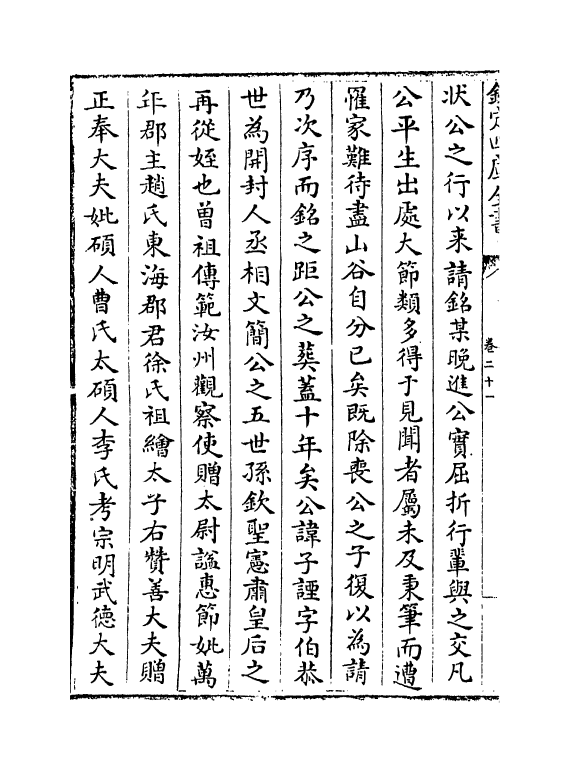 欽定四庫全書
卷二十一
狀公之行以来請銘某晩進公實屈折行輩與之交凡
公平生出處大節類多得于見聞者屬未及秉筆而遭
罹家難待盡山谷自分已矣既除喪公之子復以為請
乃次序而銘之距公之葬蓋十年矣公諱子諲字伯恭
世為開封人丞相文簡公之五世孫欽聖憲肅皇后之
再從姪也曽祖傳範汝州觀察使贈太尉諡惠節妣萬
年郡主趙氏東海郡君徐氏祖繪太子右贊善大夫贈
正奉大夫妣碩人曹氏太碩人李氏考宗明武德大夫